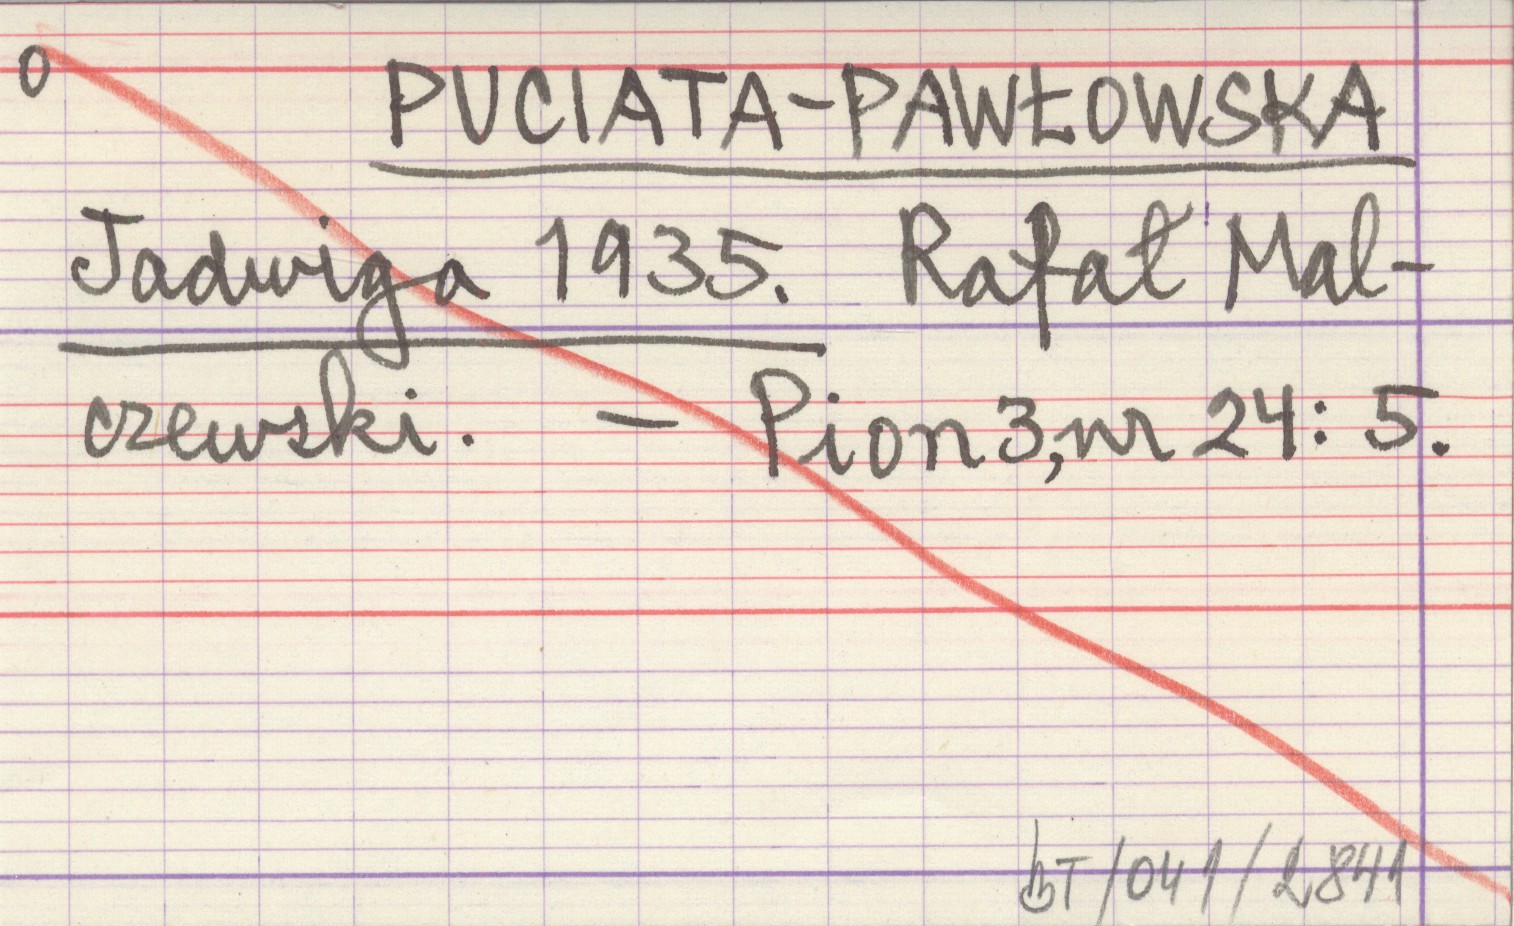 0
PUCIATA-PAWŁOWSKA
Jadwiga 1935. Rafał Mal-
czewski. - Pion 3, nr 24: 5.
bT/041/2841